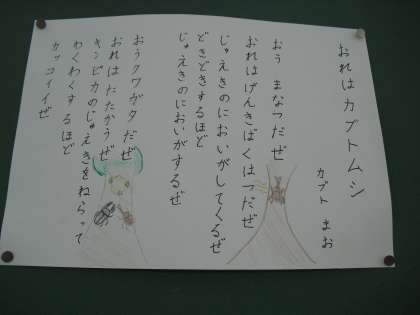 おれはカブトムシ
カブト まお
おう まなつだぜ
おれはげんきばくはつだぜ
じゅえきのにおいがしてくるぜ
どきどきするほど
じゅえきのにおいがするぜ
おうクワガタだぜ
おれはたたかうぜ
キンピカのじゅえきをねらって
わくわくするほど
カッコイイぜ